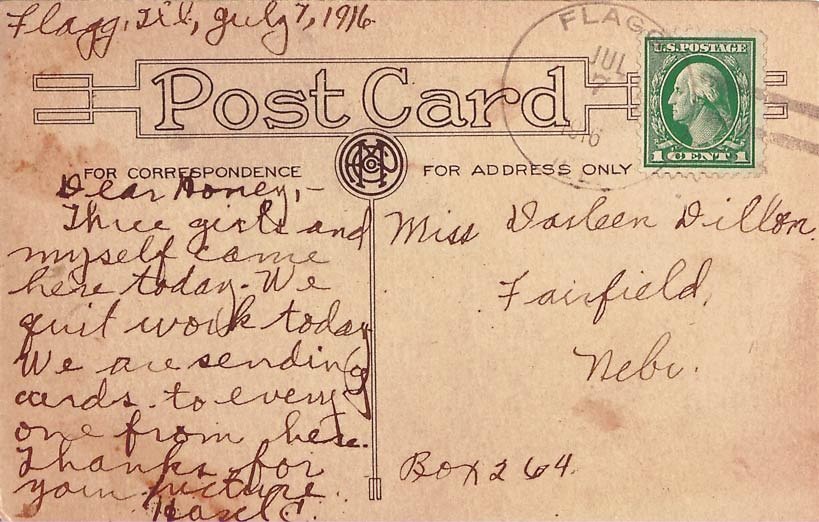 Flagg, Ill, July 7, 1916.
FLAGG
JUL
7
1916
U.S. POSTAGE
1 CENT 1
Post Card
FOR CORRESPONDENCE
FOR ADDRESS ONLY
Dear Honey,-
Three girls and
myself came
here today. We
quit work today
We are sending
cards to every
one from here.
Thanks for
your picture.
Hazel C.
Miss Darleen Dillon.
Fairfield,
Nebr.
Box 264.